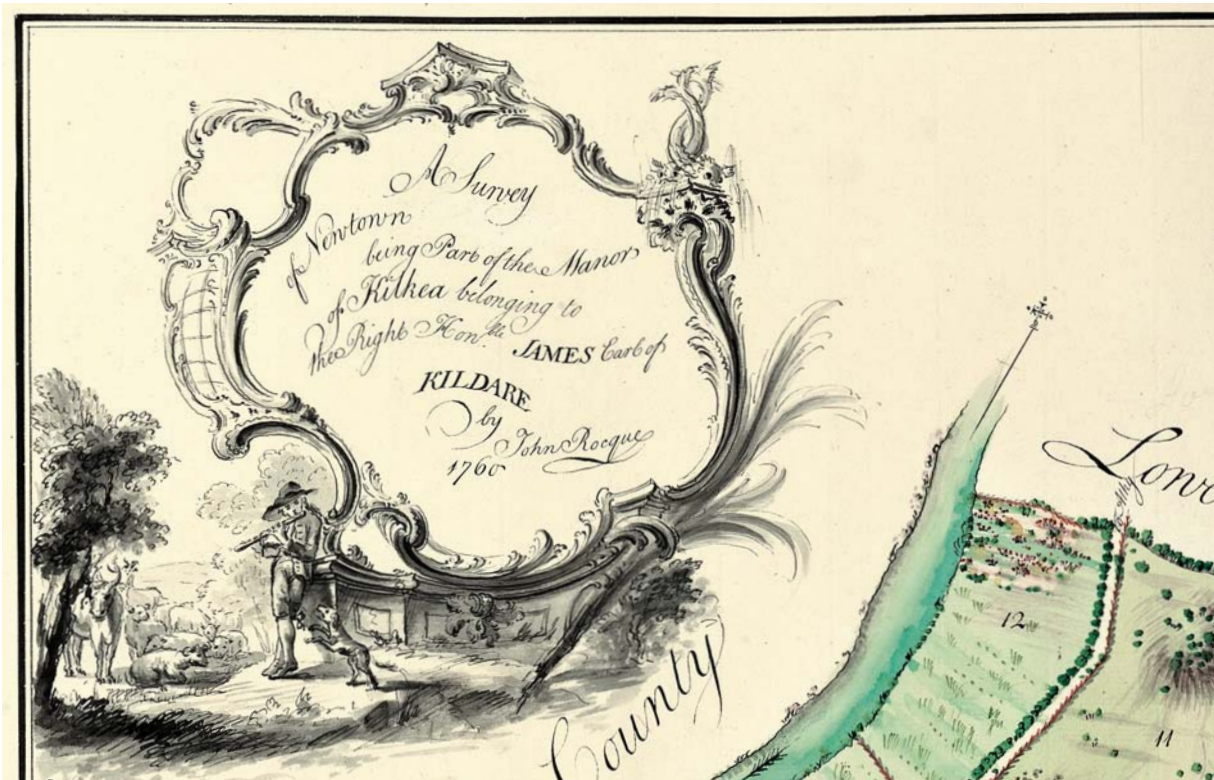 A Survey
of Newtown
being Part of the Manor
of Kilkea belonging to
the Right Hon.ble JAMES Earl of
KILDARE
by
John Rocque
1760
County
12
11